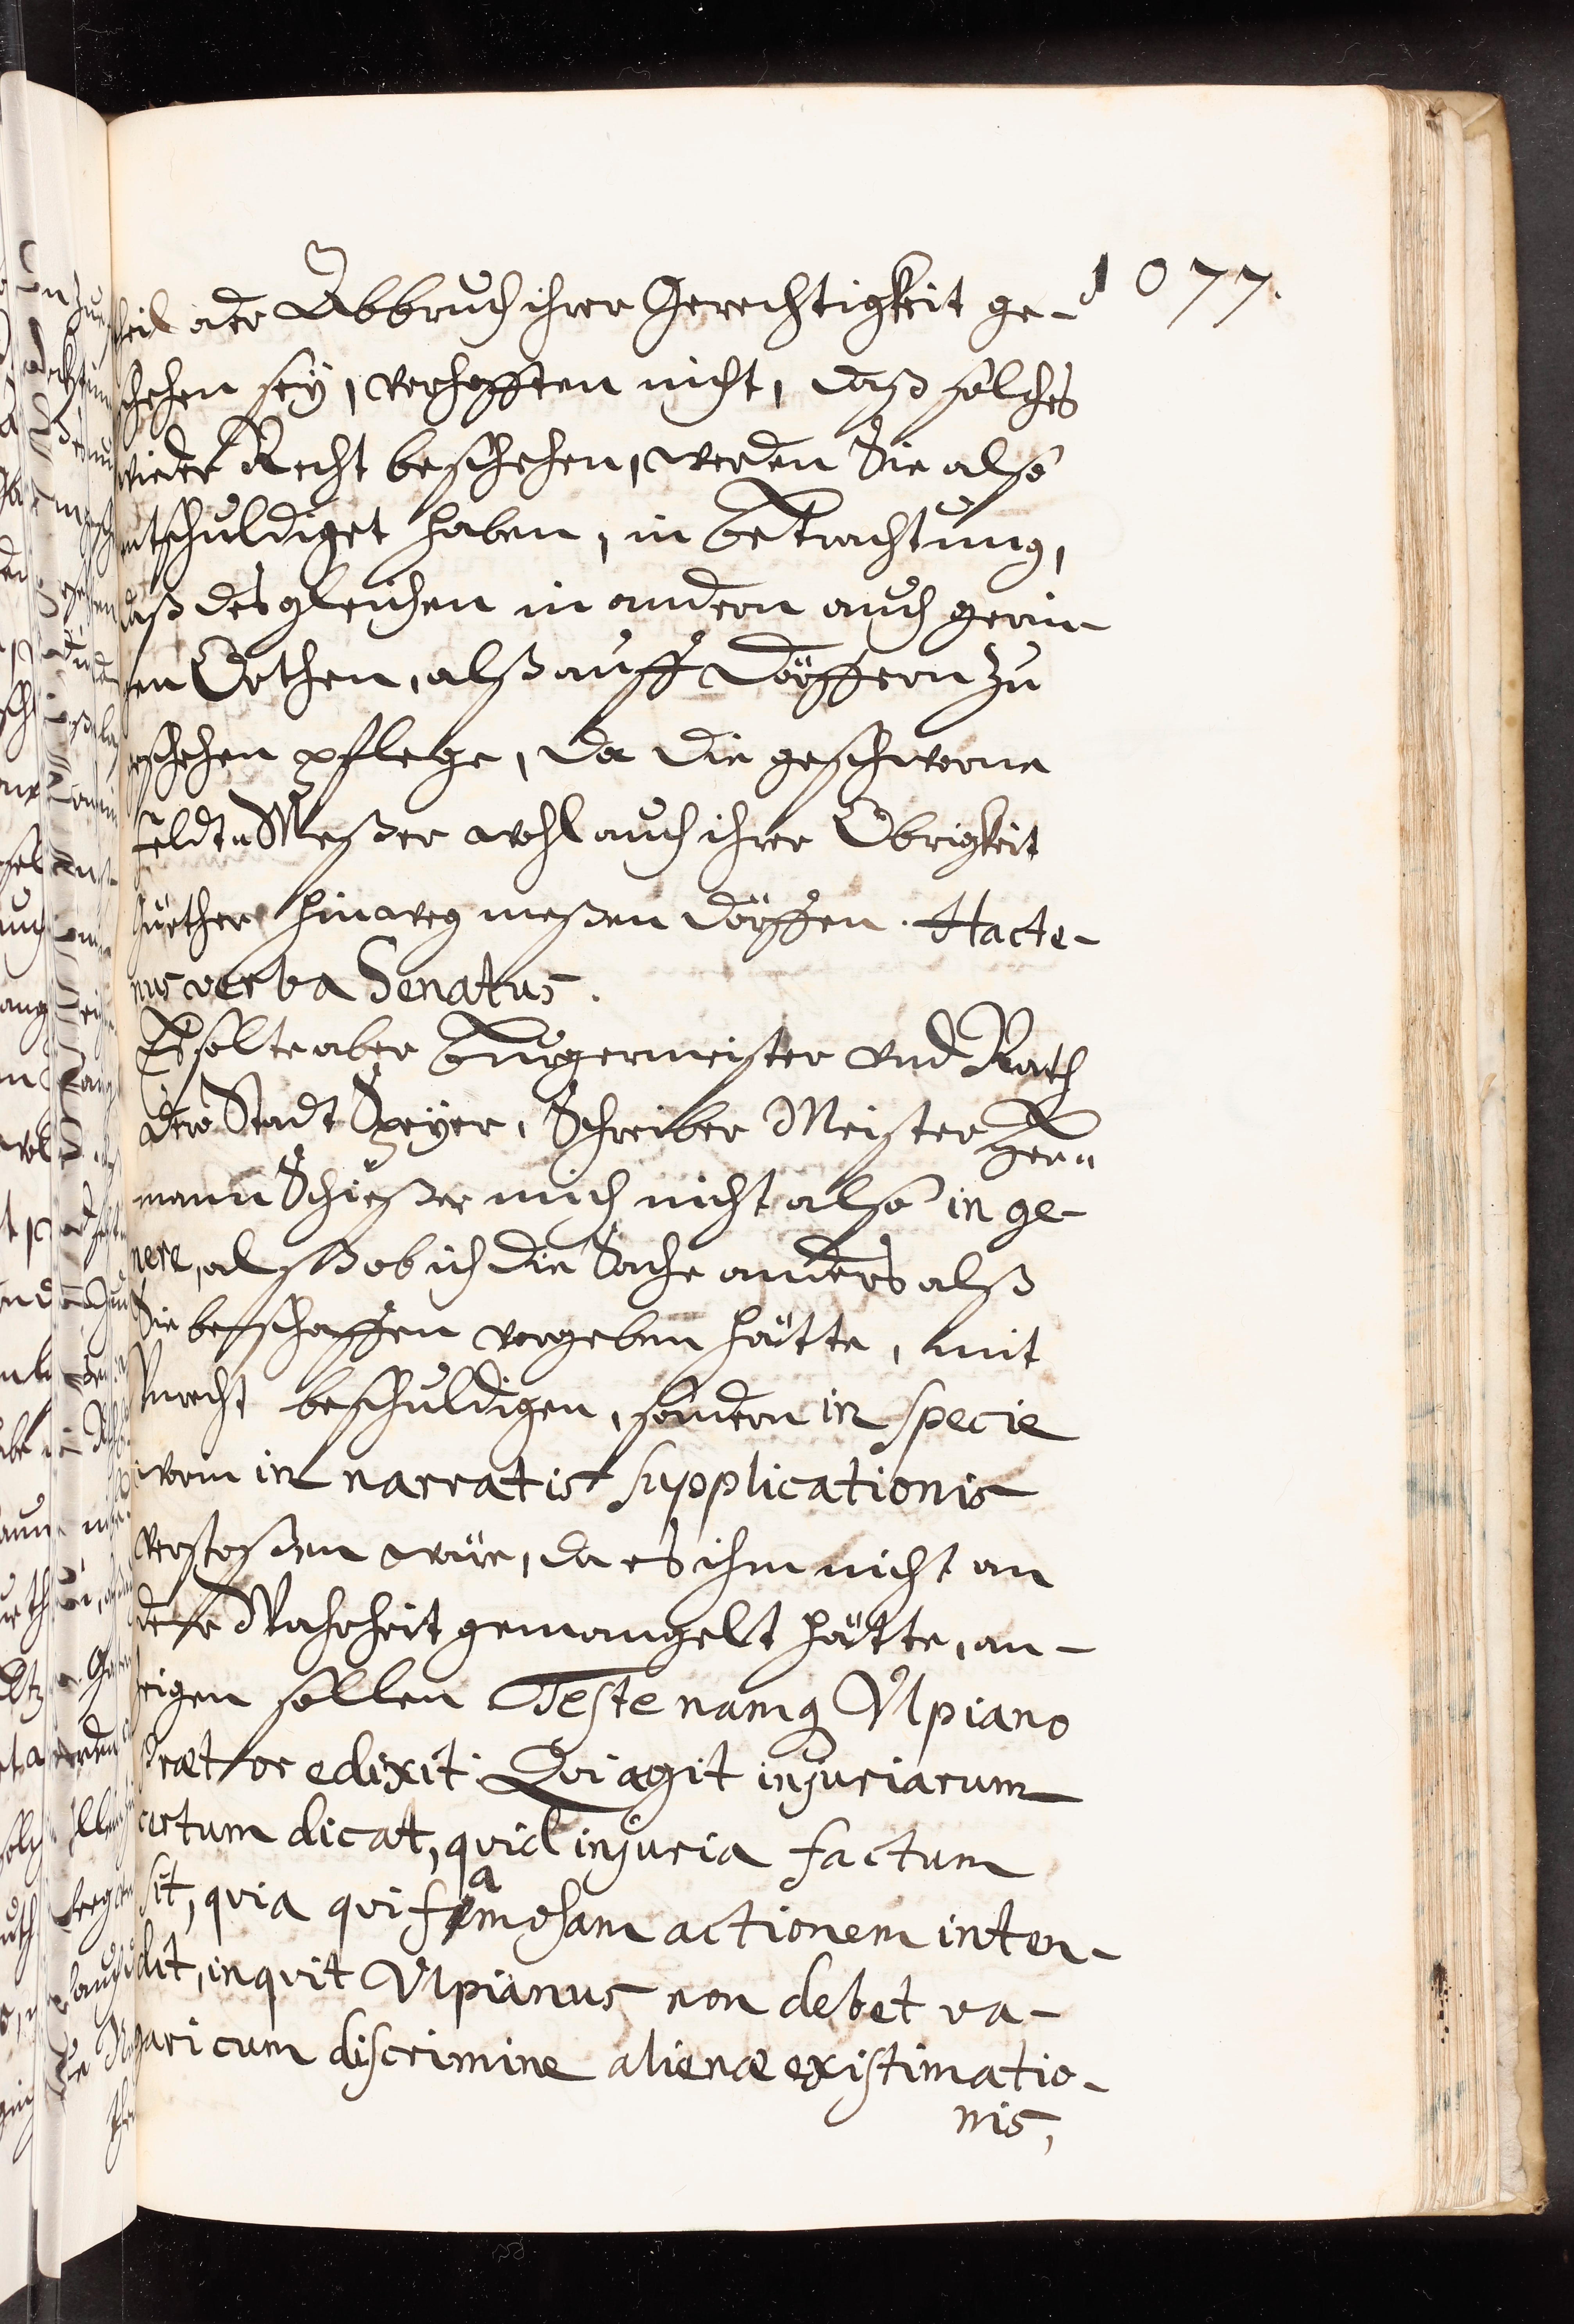 1077.
theil oder Abbruch ihrer Gerechtigkeit ge-
schehen seÿ, verhofften nicht, daß solches
wieder Recht beschehen, werden Sie also
entschuldiget haben, in betrachtung,
daß desgleichen in andern auch gerin-
gen Orthen, alß auff Dörffern zu
geschehen pflege, da die geschworne
Feldt-Meßer wohl auch ihrer Obrigkeit
Güether hinweg meßen dörffen. Hacte-
nus verba Senatus.
Es solte aber Burgermeister vnd Rath
der Stadt Speÿer, Schreiber Meister Her-
mann Schießer mich nicht also in ge-
nere, alß ob ich die Sache anders alß
Sie beschaffen vorgeben hätte, mit
Vnrecht beschuldigen, sondern in specie
wem in narratis supplicationis
verstoßen wäre, da es ihm nicht an
der Wahrheit gemangelt hätte, an-
zeigen sollen Teste namq Ulpiano
Prætor edixit: Qvi agit injuriarum
certum dicat, qvid injuria factum
sit, qvia qvi famosam actionem inten-
dit, inqvit Ulpianus non debet va-
garicum discrimine alienæ existimatio-
nis,